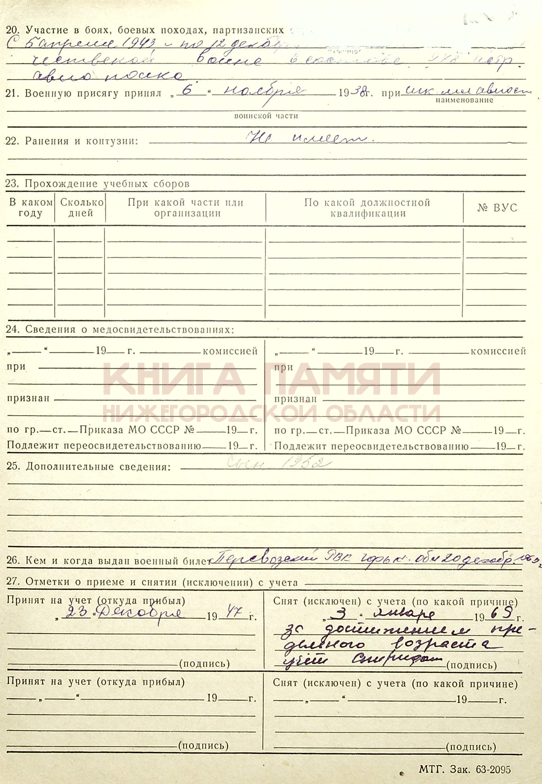 20. Участие в боях, боевых походах, партизанских
С 5 апреля 1943 - по 12 декабр
чественной войне в составе
авио полка.
21. Военную присягу принял „ 6 " ноября 1938г. при
наименование
воинской части
22. Ранения и контузии: Не имеет.
23. Прохождение учебных сборов
В каком году Сколько дней При какой части или организации По какой должностной квалификации № ВУС
24. Сведения о медосвидетельствованиях:
„ — " — 19 — г. — комиссией „ — " — 19 — г. — комиссией
при при
КНИГА ПАМЯТИ
признан признан
НИЖЕГОРОДСКОЙ ОБЛАСТИ
по гр. — ст. — Приказа МО СССР № — 19 — г. по гр. — ст. — Приказа МО СССР № — 19 — г.
Подлежит переосвидетельствованию — 19 — г. Подлежит переосвидетельствованию — 19 — г.
25. Дополнительные сведения: сын 1952
26. Кем и когда выдан военный билет Перевозский РВК Горьк. обл 20 декабр
27. Отметки о приеме и снятии (исключении) с учета
Принят на учет (откуда прибыл) Снят (исключен) с учета (по какой причине)
„ 23 " Декабря 1947 г. „ 3 " января 1969 г.
за достижением пре-
дельного возраста
(подпись) (подпись)
Принят на учет (откуда прибыл) Снят (исключен) с учета (по какой причине)
„ — " — 19 — г. „ — " — 19 — г.
(подпись) (подпись)
МТГ. Зак. 63-2095